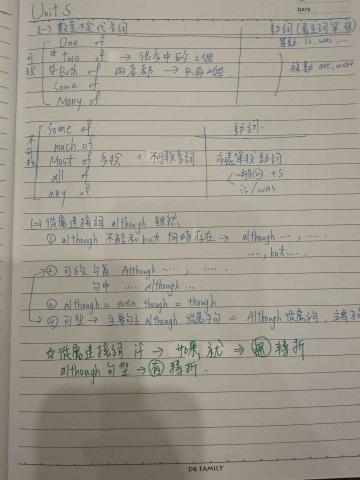 Unit 5
DATE
(一) 數量不定代名詞
動詞(看主詞單複)
One of
單動 is, was...
可數
* two of → 很多中的2個
Both of 兩者都 → 只有2個
複動 are, were
Some of
Many of
不可數
Some of
動詞
much of
Most of 多數 + 不可數名詞
永遠單數動詞
all of
一般(v) + s
any of
is/was
(二) 從屬連接詞 although 雖然
① although 不能和 but 同時存在 → although ..., ...
..., but ...
② 可放句首 Although ..., ...
句中 ... although ...
③ although = even though = though
④ 句型 → 主要句子 although 從屬子句 = Although 從屬子句, 主要
☆ 從屬連接詞 if → 如果, 就 → 無 轉折
although 句型 → 有 轉折.
DK FAMILY